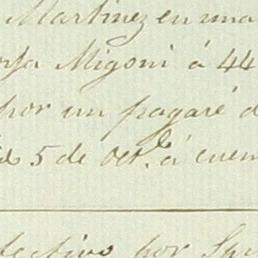 Martinez en una
Migoni á 44
por un pagaré d
5 de oct.e á cuen
fectivo por